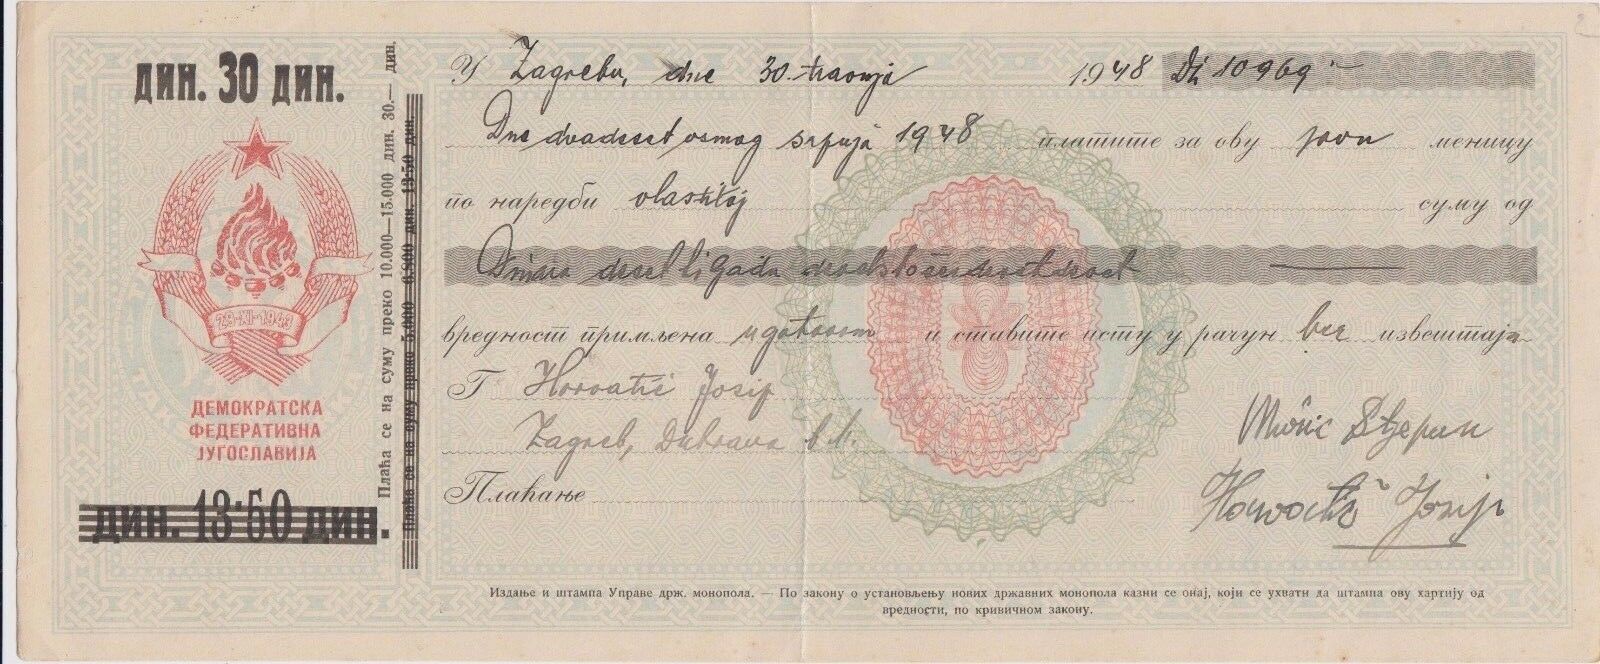 ДИН. 30 ДИН.
28-XI-1943
ДЕМОКРАТСКА
ФЕДЕРАТИВНА
ЈУГОСЛАВИЈА
ДИН. 13·50 ДИН.
Плаћа се на суму преко 10.000—15.000 дин. 30.— дин.
Плаћа се на суму преко 5.000 дин. 13·50 дин.
У Zagrebu, dne 30. travnja 1948 Din 10969·–
Dne dvadeset osmog srpnja 1948 платите за ову prvu меницу
по наредби vlastitoj суму од
Dinara deset
вредност примљена u gotovom и ставите исту у рачун bez извештаја
Г. Horvatić Josip
Zagreb, Dubrava
Stjepan
Плаћање
Horvatić Josip
Издање и штампа Управе држ. монопола. — По закону о установљењу нових државних монопола казни се онај, који се ухвати да штампа ову хартију од
вредности, по кривичном закону.